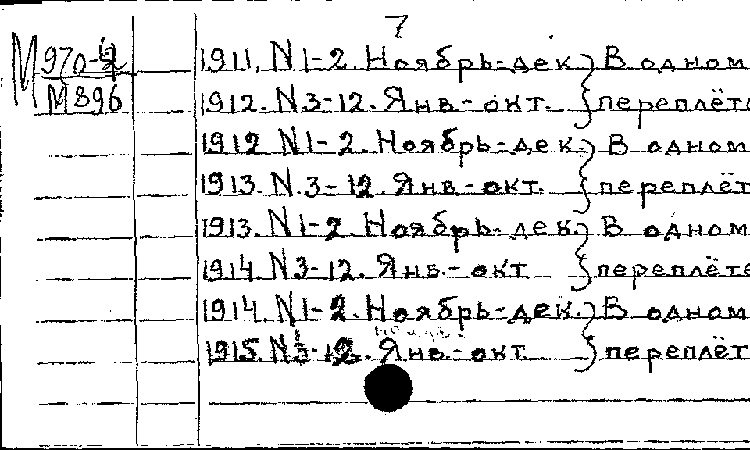 7
М 970-4 1911. N 1-2. Ноябрь-дек. } В одном
М 896 1912. N 3-12. Янв.- окт. } переплёте
1912 N 1-2. Ноябрь-дек. } В одном
1913. N. 3-12. Янв.- окт. } переплёт
1913. N 1-2. Ноябрь-дек. } В одном
1914. N 3-12. Янв.- окт } переплёте
1914. N 1-2. Ноябрь-дек. } В одном
1915. N 3-12. Янв.- окт. } переплёт